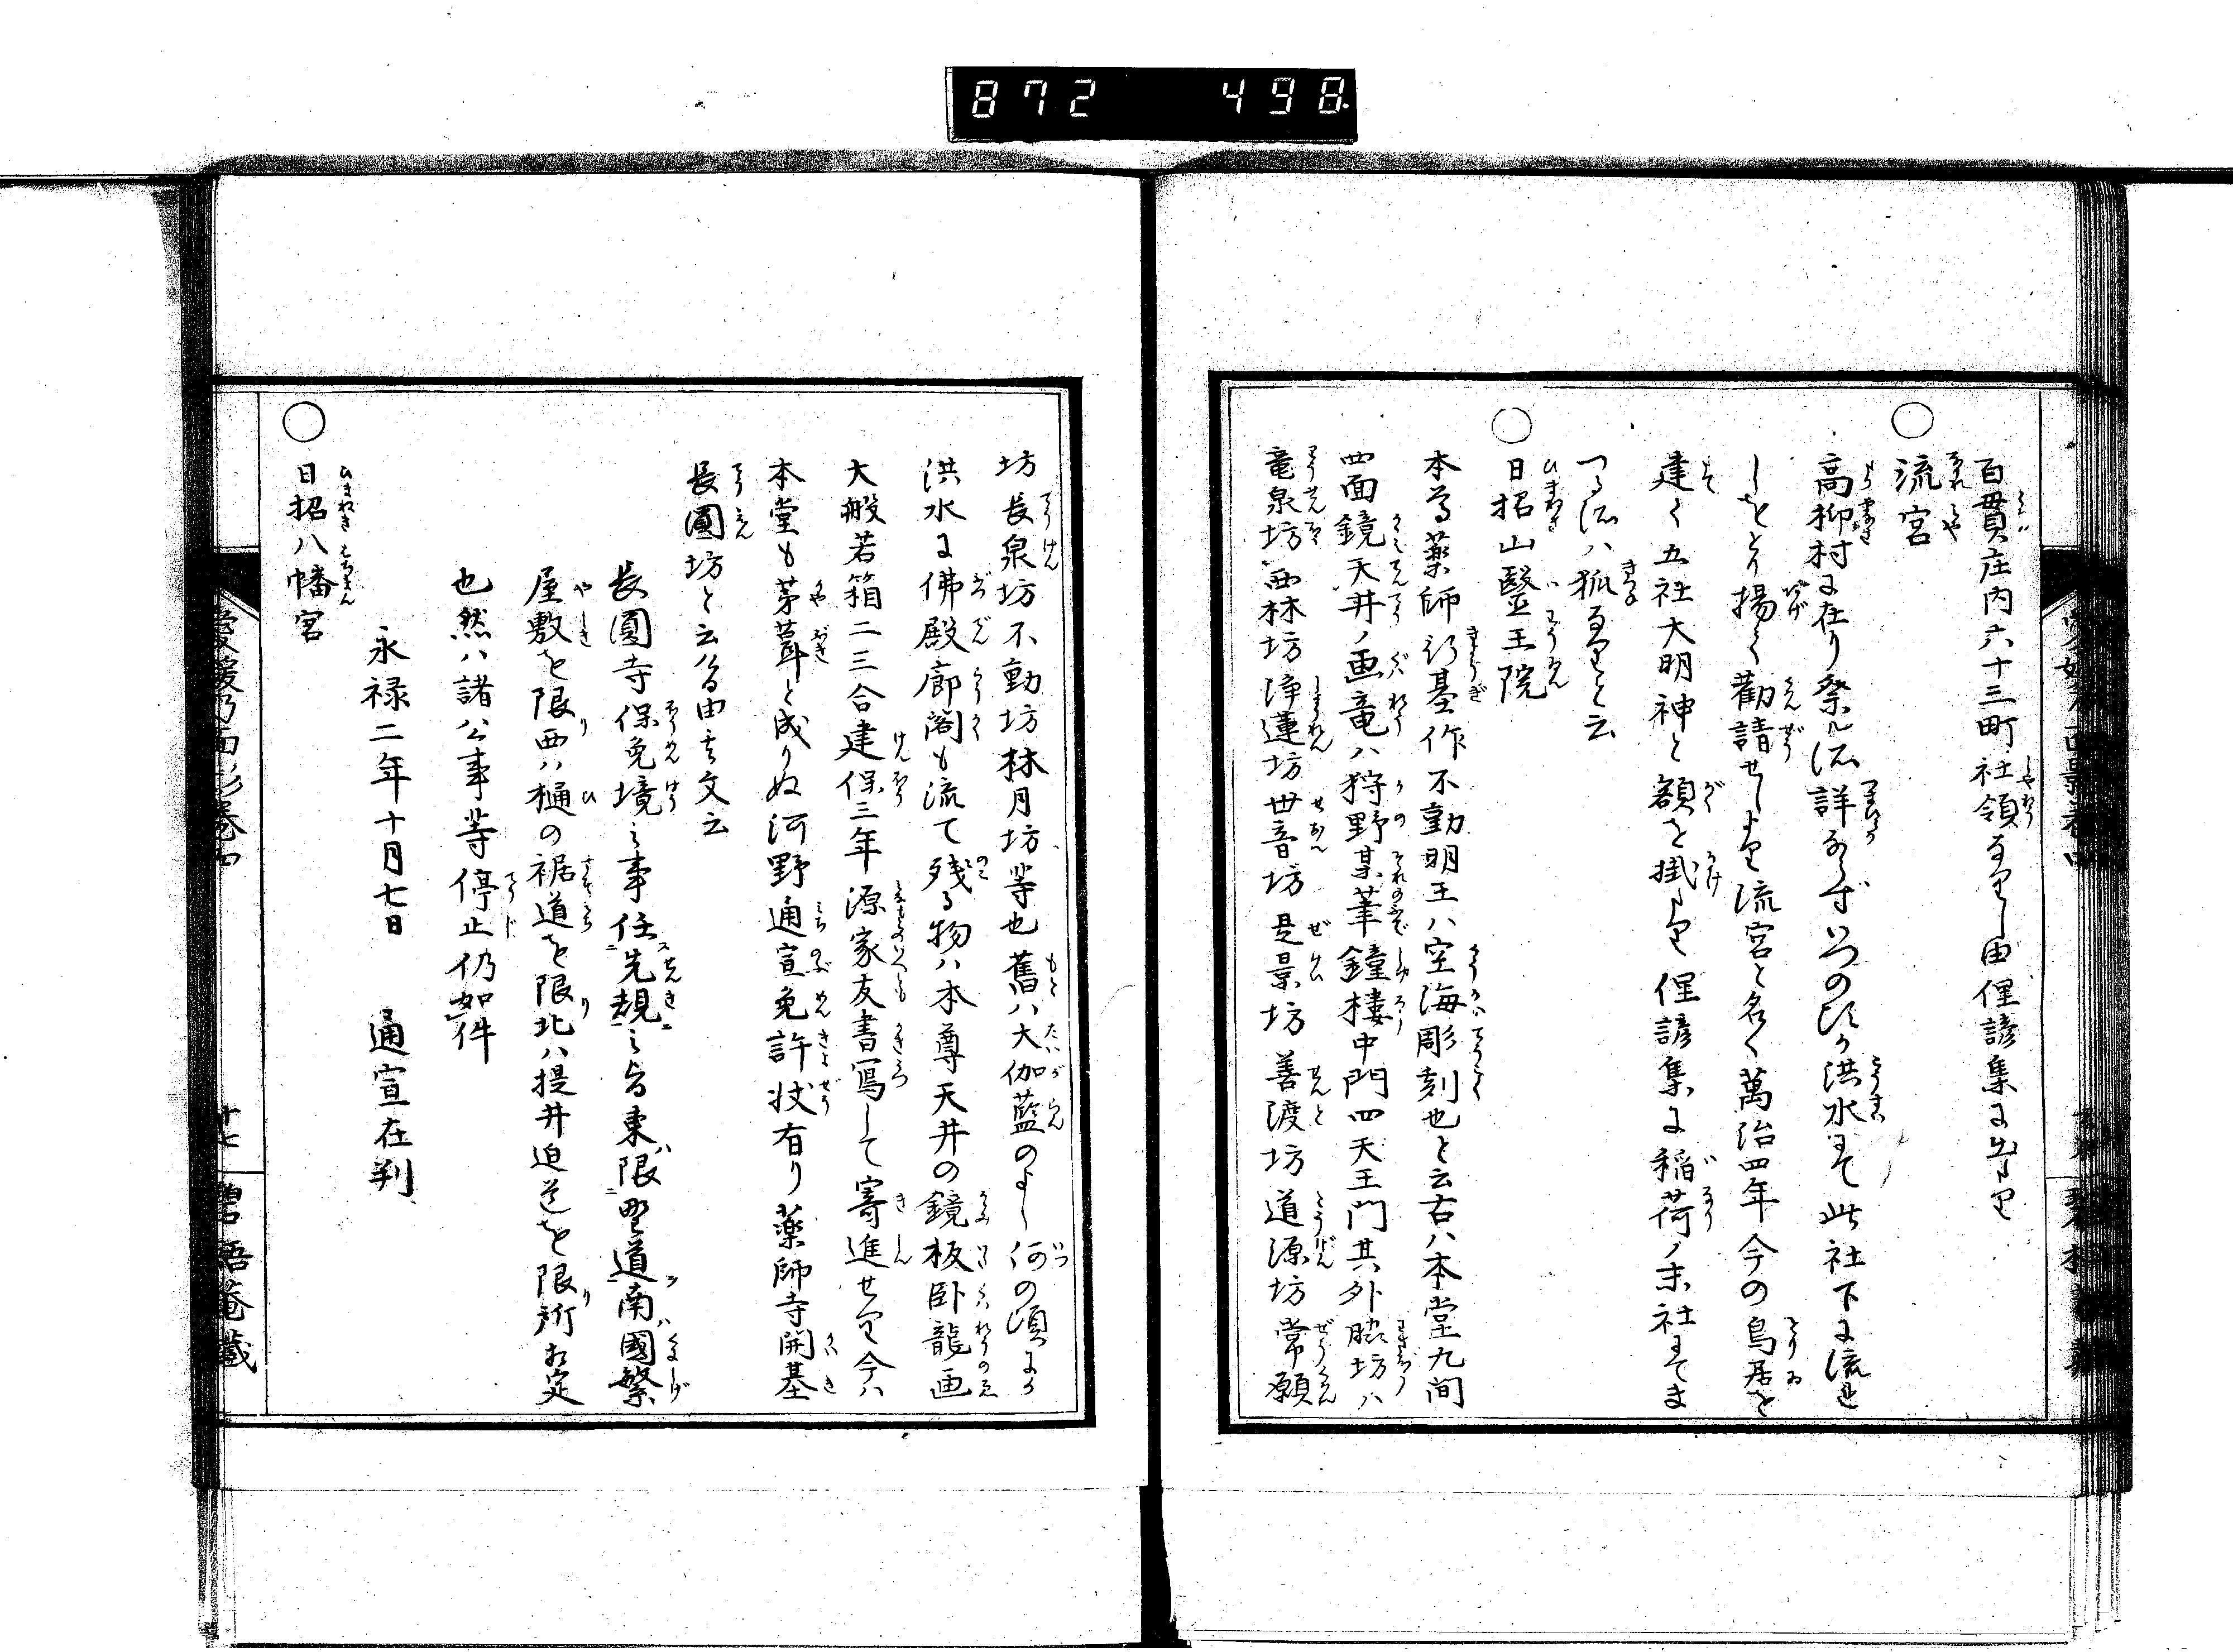 872 498
百貫庄内六十三町社領なりし由俚諺集に出たり
○流宮
高柳村に在り祭ル所詳ならずいつの頃か洪水にて此社下に流れ
しをとり揚て勧請せしより流宮と名く萬治四年今の鳥居を
建て五社大明神と額を掛たり俚諺集に稲荷ノ末社にてま
つる所ハ狐なりと云
○日招山醫王院
本尊薬師行基作不動明王ハ空海彫刻也と云古ハ本堂九間
四面鏡天井ノ画竜ハ狩野某筆鐘楼中門四天王門其外脇坊ハ
竜泉坊西林坊浄蓮坊世音坊是景坊善渡坊道源坊常願
坊長泉坊不動坊林月坊等也舊ハ大伽藍のよし何の頃にか
洪水に佛殿廊閣も流て残る物ハ本尊天井の鏡板卧龍画
大般若箱二三合建保三年源家友書寫して寄進せり今ハ
本堂も茅葺と成りぬ河野通宣免許状有り薬師寺開基
長圓坊と云ける由其文云
長圓寺保免境之事任先規之旨東限野道南國繁
屋敷を限西ハ樋の裾道を限北ハ提井迫道を限所相定
也然ハ諸公事等停止仍如件
永禄二年十月七日 通宣在判
○日招八幡宮
愛媛乃面影巻四 十七 碧梧菴蔵